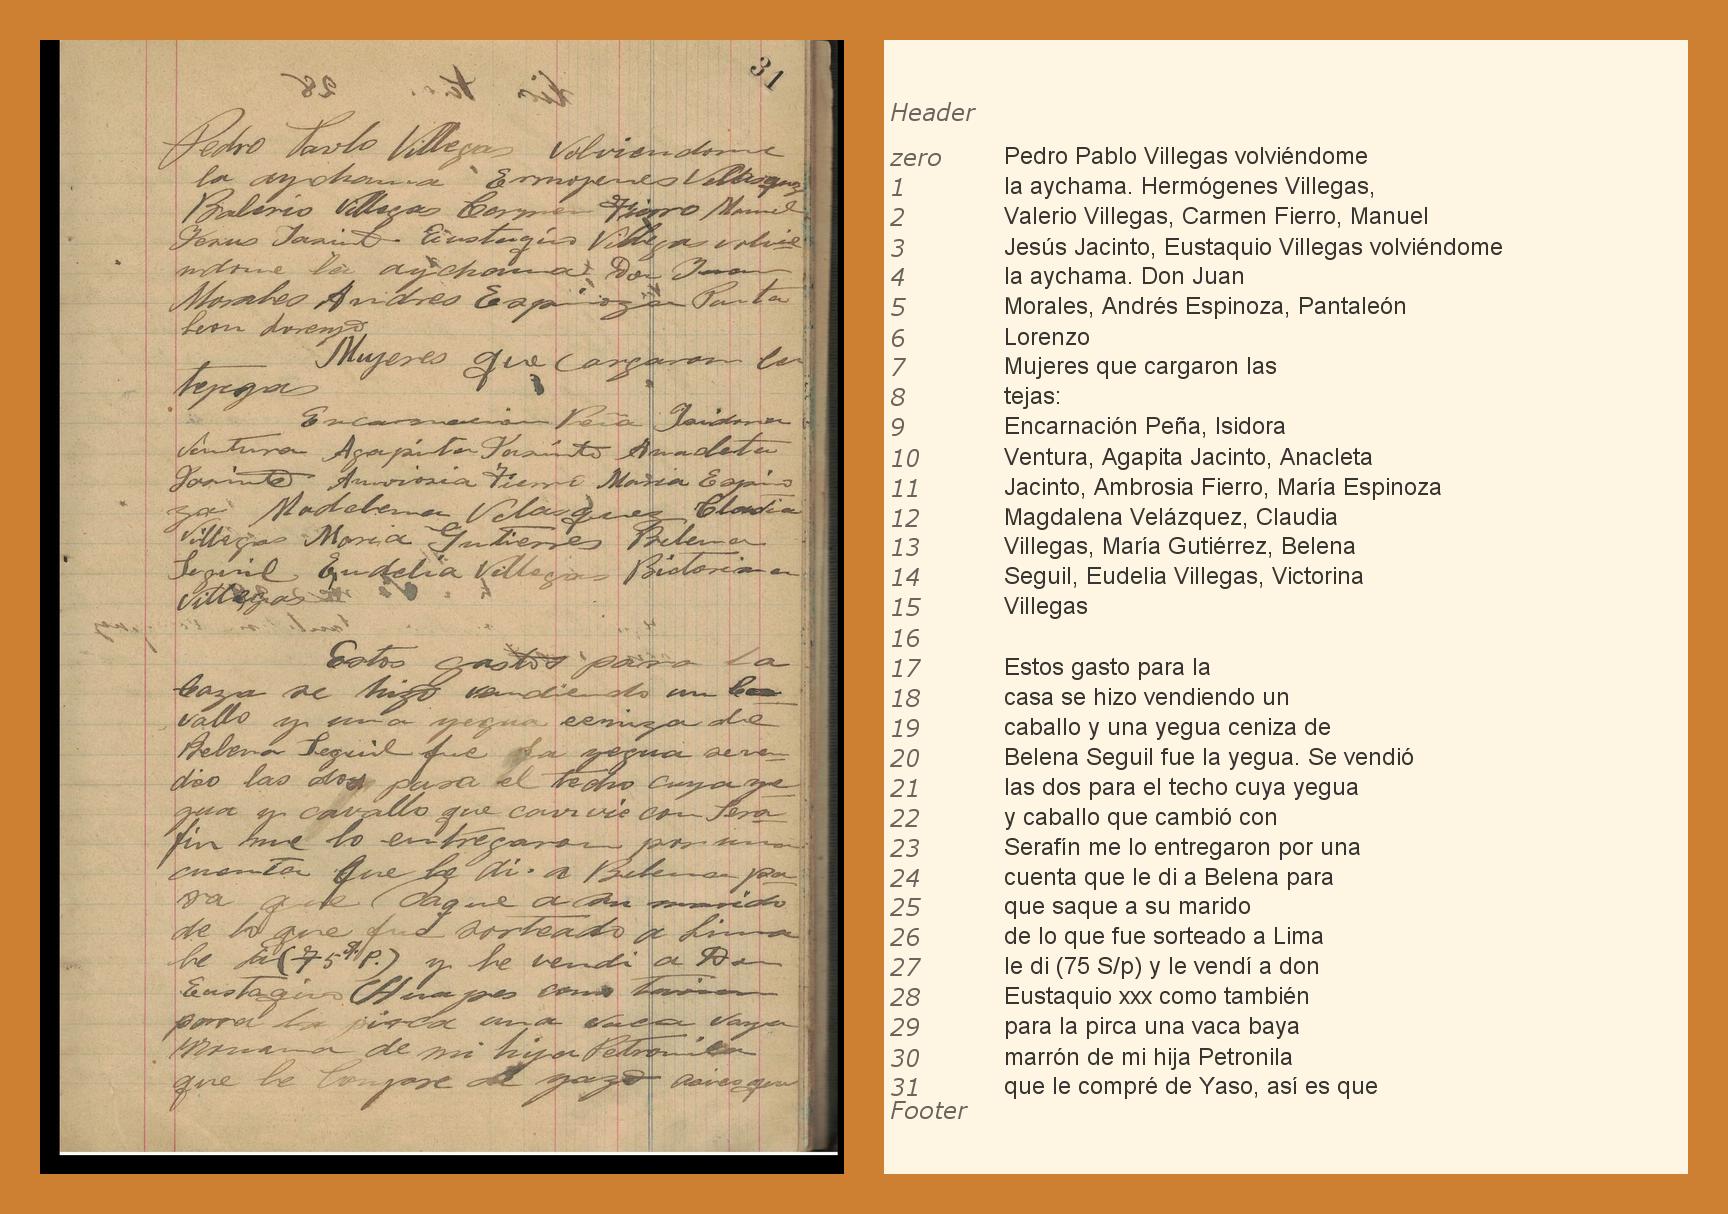 31
Pedro Pavlo Villegas Volviendome
la aychama Ermogenes Villegas
Balerio Villegas Carmen Fierro Manuel
Jesus Jasinto Eustaquio Villegas volvie
ndome la aychama Don Juan
Morales Andres Espinoza Panta
leon Lorenzo
Mujeres que Cargaron la
tejas
Encarnacion Peña Isidora
Ventura Agapita Jasinto Anacleta
Jasinto Amvrosia Fierro Maria Espino
za Madalena Velasquez Claudia
Villegas Maria Gutierres Belena
Seguil Eudelia Villegas Bictorina
Villegas
Estos gastos para la
caza se hizo vendiendo un Ca
vallo y una yegua ceniza de
Belena Seguil fue la yegua se ven
dio las dos para el techo cuya ye
gua y cavallo que canvie con Sera
fin me lo entregaron por una
cuenta que le di a Belena pa
ra que saque a su marido
de lo que fue sorteado a Lima
le di (75 S. P.) y le vendi a Don
Eustaquio como
para la pirca una vaca vaya
de mi hija Petronila
que le compre de yazo asies que
Header
zero Pedro Pablo Villegas volviéndome
1 la aychama. Hermógenes Villegas,
2 Valerio Villegas, Carmen Fierro, Manuel
3 Jesús Jacinto, Eustaquio Villegas volviéndome
4 la aychama. Don Juan
5 Morales, Andrés Espinoza, Pantaleón
6 Lorenzo
7 Mujeres que cargaron las
8 tejas:
9 Encarnación Peña, Isidora
10 Ventura, Agapita Jacinto, Anacleta
11 Jacinto, Ambrosia Fierro, María Espinoza
12 Magdalena Velázquez, Claudia
13 Villegas, María Gutiérrez, Belena
14 Seguil, Eudelia Villegas, Victorina
15 Villegas
16
17 Estos gasto para la
18 casa se hizo vendiendo un
19 caballo y una yegua ceniza de
20 Belena Seguil fue la yegua. Se vendió
21 las dos para el techo cuya yegua
22 y caballo que cambió con
23 Serafín me lo entregaron por una
24 cuenta que le di a Belena para
25 que saque a su marido
26 de lo que fue sorteado a Lima
27 le di (75 S/p) y le vendí a don
28 Eustaquio xxx como también
29 para la pirca una vaca baya
30 marrón de mi hija Petronila
31 que le compré de Yaso, así es que
Footer